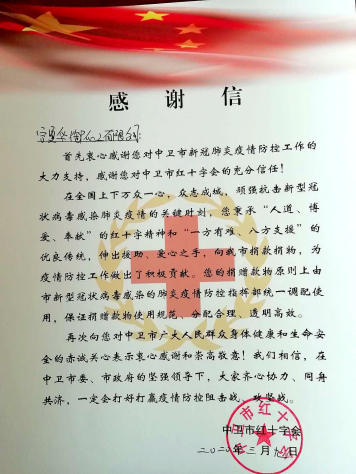 感谢信
首先衷心感谢您对中卫市新冠肺炎疫情防控工作的
大力支持，感谢您对中卫市红十字会的充分信任！
在全国上下万众一心，众志成城，顽强抗击新型冠
状病毒感染肺炎疫情的关键时刻，您秉承“人道、博
爱、奉献”的红十字精神和“一方有难、八方支援”的
优良传统，伸出援助、爱心之手，向我市捐款捐物，为
疫情防控工作做出了积极贡献。您的捐赠款物原则上由
市新型冠状病毒感染的肺炎疫情防控指挥部统一调配使
用，保证捐赠款物使用规范、分配合理、透明高效。
再次向您对中卫市广大人民群众身体健康和生命安
全的赤诚关心表示衷心感谢和崇高敬意！我们相信，在
中卫市委、市政府的坚强领导下，大家齐心协力、同舟
共济，一定会打好打赢疫情防控阻击战、攻坚战。
中卫市红十字会
二〇二〇年三月 日
中卫市红十字会